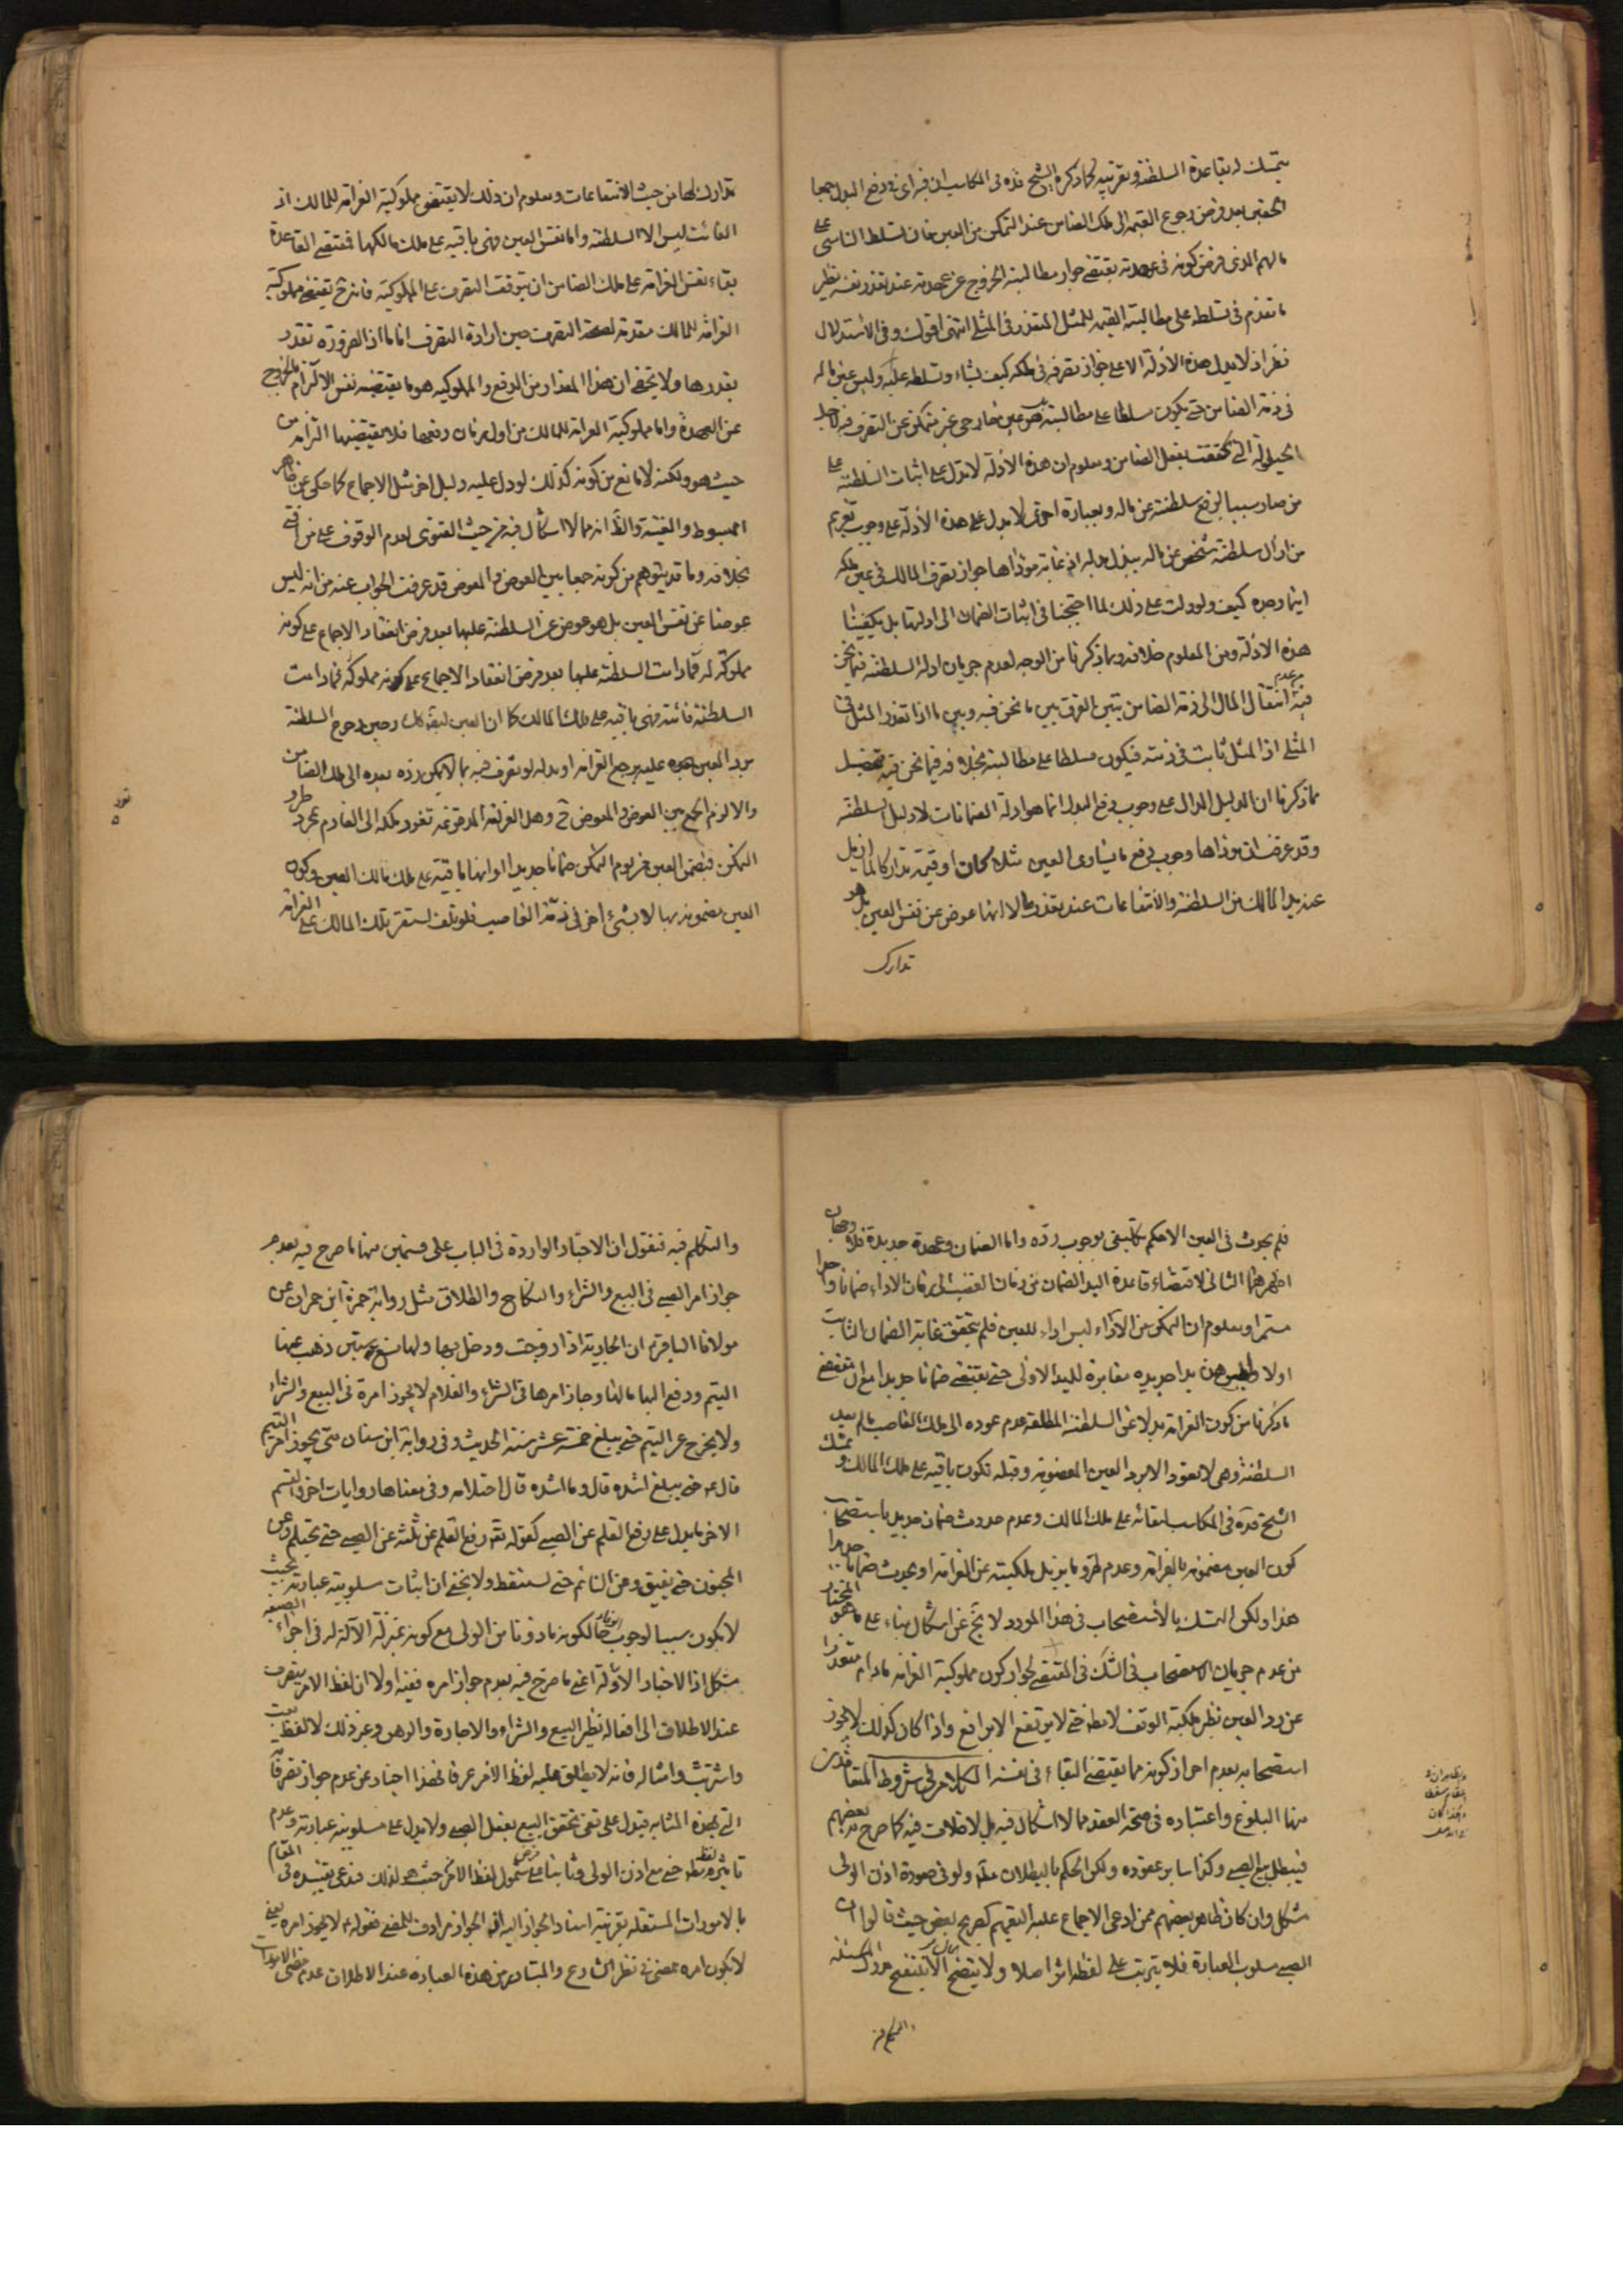 يتمسك له بقاعدة السلطنة وتقريبه كما ذكره الشيخ قده فى المكاسب ان فيه اى فى دفع البدل جمعا
الحقين بعد فرض رجوع القيمة الى ملك الضامن عند التمكن من العين فان تسلط الناس على
مالهم الذى فرض كونه فى عهدته يقتضى جواز مطالبته الخروج عن عهدته عند تعذر نفسه نظير
ما تقدم فى تسلطه على مطالبة القيمة للمثل المتعذر فى المثلى انتهى اقول وفى الاستدلال
نظر اذ لا يدل هذه الادلة الا على جواز تصرفه فى ملكه كيف يشاء وتسلطه عليه وليس عين ماله
فى ذمة الضامن حتى يكون سلطانا على مطالبته بل هو عين خارجى غير متمكن عن التصرف فيه لاجل
الحيلولة التى تحققت بفعل الضامن ومعلوم ان هذه الادلة لا تدل على اثبات السلطنة على
من صار سببا لرفع سلطنته عن ماله وبعبارة اخرى لا يدل على هذه الادلة على وجوب تغريم
من ازال سلطنة شخص عن ماله ببذل بدله اذ غاية مؤداها جواز تصرف المالك فى عين ملكه
اينما وجده كيف ولو دلت على ذلك لما احتجنا فى اثبات الضمان الى ادلتها بل يكفينا
هذه الادلة ومن المعلوم خلافه وبما ذكرنا من الوجه لعدم جريان ادلة السلطنة فيما نحن
فيه من عدم انتقال المال الى ذمة الضامن يتبين الفرق بين ما نحن فيه وبين ما اذا تعذر المثل فى
المثلى اذ المثل ثابت فى ذمته فيكون مسلطا على مطالبته بخلافه فيما نحن فيه فتحصل
مما ذكرنا ان الدليل الدال على وجوب دفع البدل انما هو ادلة الضمانات لا دليل السلطنة
وقد عرفت ان مؤداها وجوب دفع ما يساوى العين مثلا كان او قيمة تداركا لما ازيل
عند يد المالك من السلطنة والانتفاعات عند تعذرها لا انها عوض عن نفس العين بل هو
تدارك
تدارك لها من حيث الانتفاعات ومعلوم ان ذلك لا يقتضى مملوكية الغرامة للمالك اذ
الفائت ليس الا السلطنة واما نفس العين فهى باقية على ملك مالكها فتقتضى القاعدة
بقاء نفس الغرامة على ملك الضامن ان يتوقف التصرف على المملوكية فانه ح يقتضى مملوكية
الغرامة للمالك مقدمة لصحة التصرف حين ارادة التصرف انا ما اذ الضرورة تقدر
بقدرها ولا يخفى ان هذا المقدار من الدفع والمملوكيه هو ما يقتضيه نفس الالتزام بالخروج
عن العهدة واما مملوكية الغرامة للمالك من اول زمان دفعها فلا يقتضيها الغرامة من
حيث هو ولكنه لا مانع من كونه كذلك لو دل عليه دليل اخر مثل الاجماع كما حكى عن ظاهر
المبسوط والغنية والظ انه مما لا اشكال فيه من حيث الفتوى لعدم الوقوف على من افتى
بخلافه وما قد يتوهم من كونه جمعا بين العوض والمعوض قد عرفت الجواب عنه من انه ليس
عوضا عن نفس العين بل هو عوض عن السلطنة عليها بعد فرض انعقاد الاجماع على كونه
مملوكة له فما دامت السلطنة عليها بعد فرض انعقاد الاجماع على كونه مملوكة فما دامت
السلطنة فائتة فهى باقية على ملك المالك كما ان العين ايضا كذلك وحين رجوع السلطنة
برد العين عليه يرجع الغرامة او بدله لو تصرف فيه بما لا يمكن رده بعده الى ملك الضامن
والا لزم الجمع بين العوض والمعوض ح وهل الغرامة المدفوعة تعود ملكه الى الغارم بمجرد طرو
التمكن فيضمن العين من يوم التمكن ضمانا جديدا او انها باقية على ملك مالك العين وكون
العين مضمونة بها لا بشئ اخر فى ذمة الغاصب فلو تلف استقر ملك المالك على الغرامة
فلم يحدث فى العين الا حكم تكليفى بوجوب رده واما الضمان وعهدة جديدة فلا وجهان
اظهرهما الثانى لاقتضاء قاعدة اليد الضمان من زمان الغصب الى زمان الاداء ضمانا واحدا
مستمرا ومعلوم ان التمكن من الاداء ليس اداء للعين فلم يتحقق غاية الضمان الثابت
اولا وليس هنا يدا جديدة مغايرة لليد الاولى حتى يقتضى ضمانا جديدا مع ان مقتضى
ما ذكرنا من كون الغرامة بدلا عن السلطنة المطلقة عدم عوده الى ملك الغاصب ما لم يعد
السلطنة وهى لا يعود الا برد العين المغصوبة وقبله تكون باقية على ملك المالك وتمسك
الشيخ قده فى المكاسب لبقائه على ملك المالك وعدم حدوث ضمان جديد باستصحاب
كون العين مضمونة بالغرامة وعدم طرو ما يزيل ملكيته عن الغرامة او يحدث ضمانا جديدا
هذا ولكن التمسك بالاستصحاب فى هذا المورد لا يخ عن اشكال بناء على ما هو المختار
من عدم جريان الاستصحاب فى الشك فى المقتضى لجواز كون مملوكية الغرامة ما دام متعذرا
عن رد العين نظير ملكية الوقف لا مط حتى لا يرتفع الا برافع واذا كان كذلك لا يجوز
استصحابه لعدم احراز كونه مما يقتضى البقاء فى نفسه الكلام فى شروط المتعاقدين
منها البلوغ واعتباره فى صحة العقد مما لا اشكال فيه بل لا خلاف فيه كما صرح به بعضهم
فيبطل بيع الصبى وكذا ساير عقوده ولكن الحكم بالبطلان مط ولو فى صورة اذن الولى
مشكل وان كان ظاهر بعضهم ممن ادعى الاجماع عليه التعميم كصريح بعض حيث قالوا ان
الصبى مسلوب العبارة فلا يترتب على لفظه اثر اصلا ولا يتضح الا بتنقيح مدرك المسئلة
والتكلم فيه
والتكلم فيه فنقول ان الاخبار الواردة فى الباب على قسمين منها ما صرح فيه بعدم
جواز امر الصبى فى البيع والشراء والنكاح والطلاق مثل رواية حمزة ابن حمران عن
مولانا الباقر ع ان الجارية اذا زوجت ودخل بها ولها تسع سنين ذهب عنها
اليتم ودفع اليها مالها وجاز امرها فى الشراء والغلام لا يجوز امره فى البيع والشراء
ولا يخرج عن اليتم حتى يبلغ خمسة عشر سنة الحديث وفى رواية ابن سنان متى يجوز امر اليتيم
قال ع حتى يبلغ اشده قال وما اشده قال احتلامه وفى معناها روايات اخر والقسم
الاخر ما يدل على رفع القلم عن الصبى كقوله ع رفع القلم عن ثلثة عن الصبى حتى يحتلم وعن
المجنون حتى يفيق وعن النائم حتى يستيقظ ولا يخفى ان اثبات سلوبية عبارته بحيث
لا يكون سببا لوجوب لكونه ماذونا من الولى مع كونه بمنزلة الآلة له فى اجراء الصيغة
مشكل اذ الاخبار الاولة اعنى ما صرح فيه بعدم جواز امره ففيه اولا ان لفظ الامر ينصرف
عند الاطلاق الى افعاله نظير البيع والشراء والاجارة والرهن وغير ذلك لا لفظ بعت
واشتريت وامثاله فانه لا يطلق عليه لفظ الامر عرفا فهذا اخبار عن عدم جواز تصرفاته
التى بهذه المثابة فيدل على نفى تحقق البيع بفعل الصبى ولا يدل على مسلوبية عبارته وعدم
تاثير لفظه مط حتى مع اذن الولى وثانيا مع فرض شمول لفظ الامر حيث هو لذلك فندعى تقييده فى المقام
بالامورات المستقلة بقرينة اسناد الجواز اليه اذ الجواز مرادف للمضى فقوله ع لا يجوز امره يعنى
لا يكون امره بمضى فى نظر الشارع والمتبادر من هذه العبارة عند الاطلاق عدم مضى الامورات